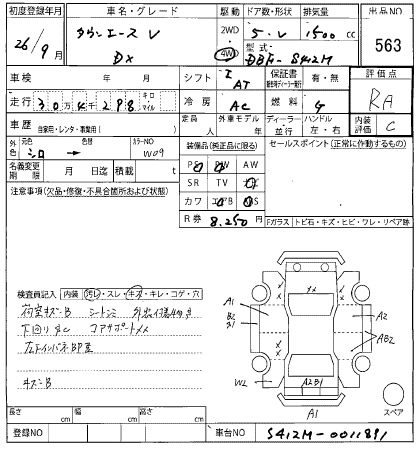 初度登録年月 車名・グレード 駆動 ドア数・形状 排気量 出品NO
26/9月 タウンエース V 2WD 5・V 1500 cc 563
DX 4WD 型式 DBF-S412M
車検 シフト I AT 保証書 有・無 評価点
走行 30万4千298 キロ マイル 冷房 AC 燃料 G RA
車歴 自家用・レンタ・事業用( ) 定員 人 外車モデル 年 ディーラー 並行 ハンドル 左・右 内装評価 C
外色 元色 シロ → 色替 カラーNO W09 装備品(純正品に限る) セールスポイント(正常に作動するもの)
名義変更期限 月 日迄 積載 t PS PW AW
注意事項(欠品・修復・不具合箇所および状態) SR TV ナビ
カワ エアB ABS
R券 8.250円 Fガラス トビ石・キズ・ヒビ・ワレ・リペア跡
検査員記入 内装 汚レ・スレ・キズ・キレ・コゲ・穴
荷室キズ・B シートシミ
下回りサビ コアサポートメメ
左下インパネBP里
キズ・B
A1
B2
A1
W2
A2
AB2
A2B1
A1
スペア
長さ cm 幅 cm 高さ cm
登録NO 車台NO S412M-0011891